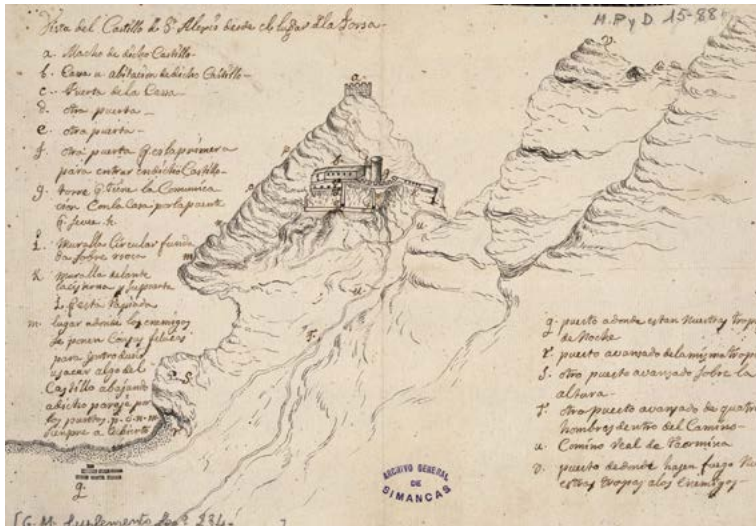 Vista del Castillo de Sn Alexio desde el lugar dla Forsa
M.P y D. 15-88
a. Macho de dicho Castillo-
b. Cassa u abitacion de dicho Castillo-
c. Puerta de la Cassa-
d. otra puerta-
e. otra puerta-
f. otra puerta q. es la primera
para entrar en dicho Castillo-
g. torre q. tiene la Comunica
cion Con la Casa por la puente
q. sigue h
i. Muralla Circular funda
da sobre roca
k. muralla delante
la cisterna y su puerta
l. q está tapiada
m. lugar adonde los enemigos
se ponen con sus felucas
para introducir
u sacar algo del
Castillo abajando
a dicho paraje por
los puntos. p. o. n. m
siempre a Cubierto
q. puesto adonde estan Nuestras trop
de Noche
r. puesto avansado de la misma tropa
s. otro puesto avansado sobre la
altura-
T. otro puesto avansado de quatro
hombres dentro del Camino-
u. Comino Real de Taormina
v. puesto de donde hasen fuego Nu
estras tropas a los Enemigos-
a
v
p
u
m
T
s
r
q
ARCHIVO GENERAL
DE
SIMANCAS
[G. M. Suplemento Leg.º 234.